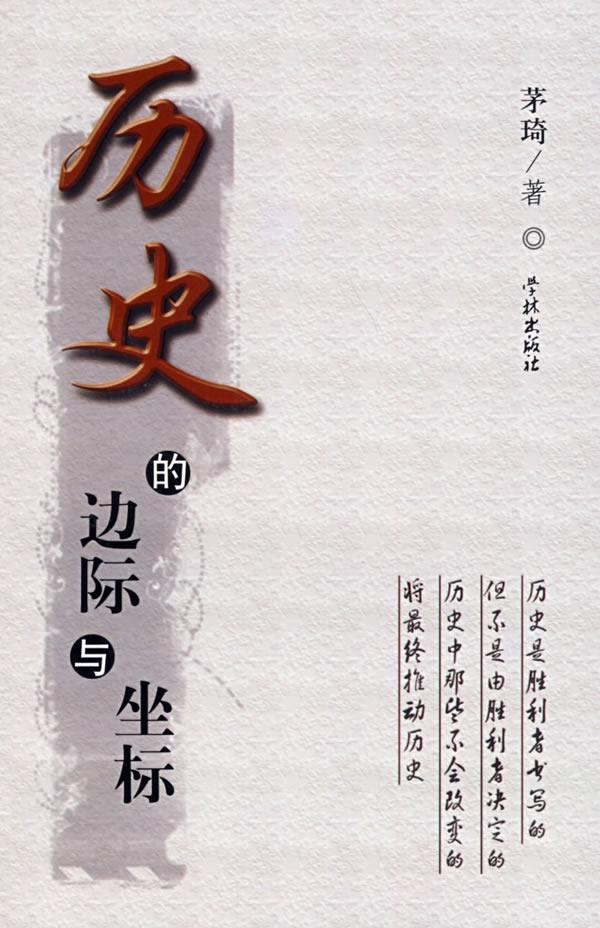 历史
的
边际
与
坐标
茅琦/著◎
学林出版社
历史是胜利者书写的
但不是由胜利者决定的
历史中那些不会改变的
将最终推动历史